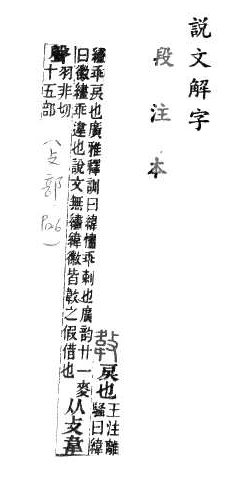 說文解字
段注本
𢾁戾也王注離
騷曰緯
繣乖戾也廣雅釋訓曰緯㦎乖剌也廣韵廿一麥
曰徽繣乖違也說文無繣緯徽皆𢾁之假借也
从攴韋
聲羽非切
十五部
(攴部 P126)